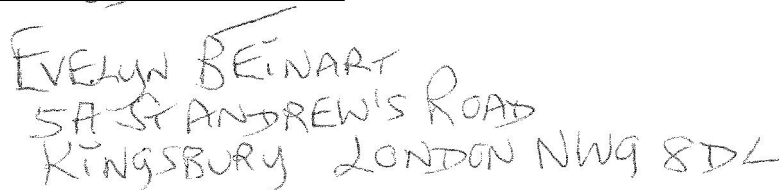 EVELYN BEINART
5A ST ANDREW'S ROAD
KINGSBURY LONDON NW9 8DL